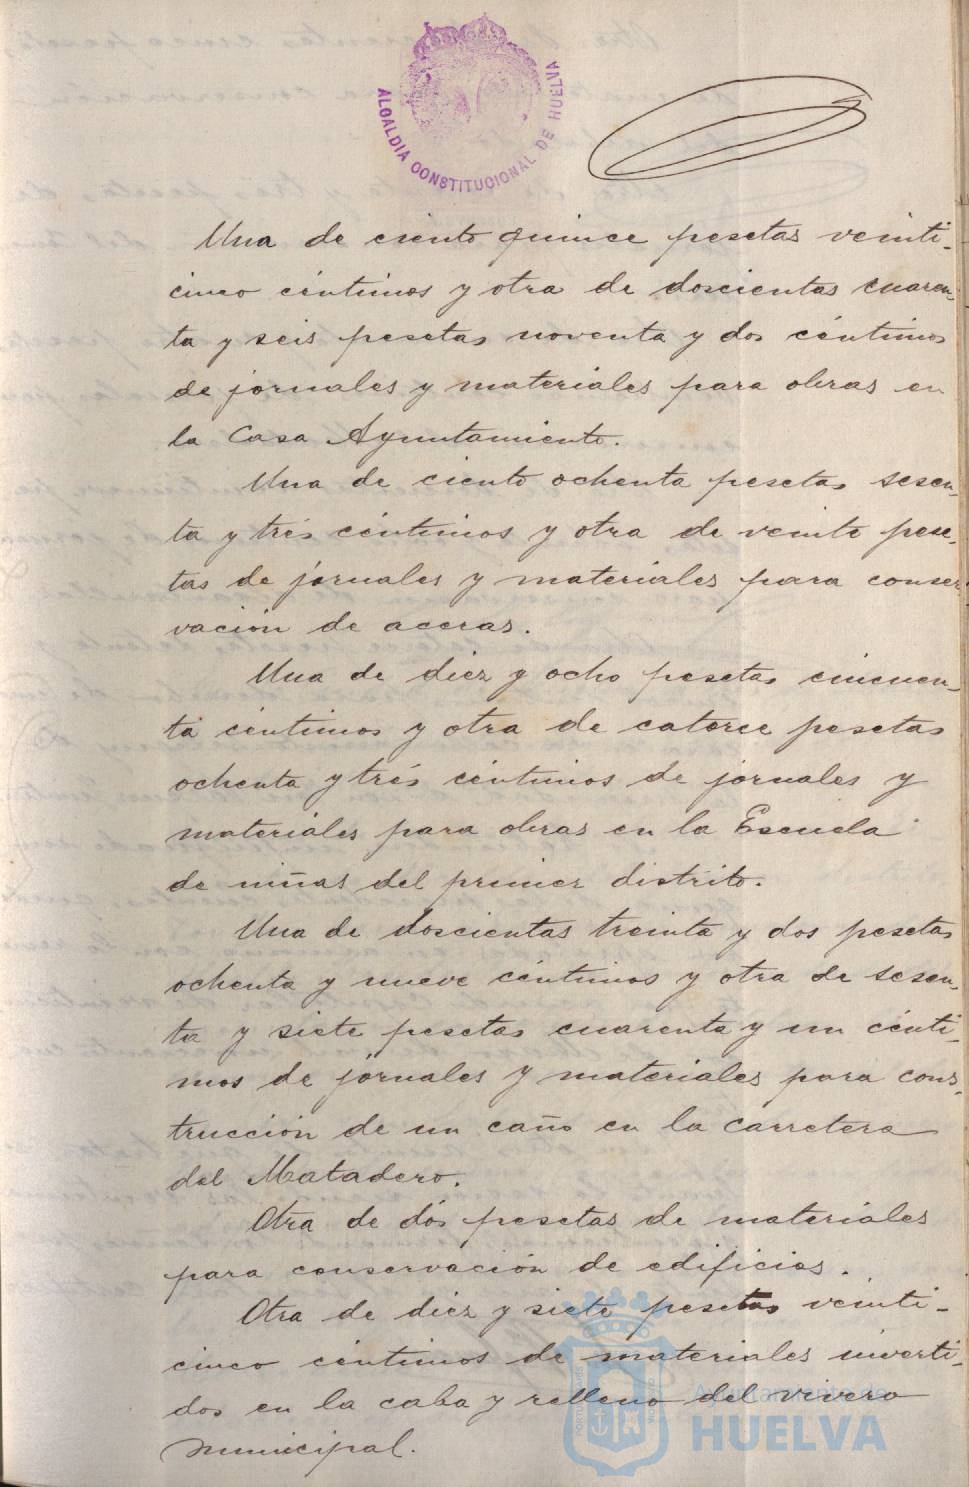 ALCALDIA CONSTITUCIONAL DE HUELVA
Una de ciento quince pesetas veinti-
cinco céntimos y otra de doscientas cuaren-
ta y seis pesetas noventa y dos céntimos
de jornales y materiales para obras en
la Casa Ayuntamiento.
Una de ciento ochenta pesetas sesen-
ta y trés céntimos y otra de veinte pese-
tas de jornales y materiales para conser-
vación de aceras.
Una de diez y ocho pesetas cincuen-
ta céntimos y otra de catorce pesetas
ochenta y trés céntimos de jornales y
materiales para obras en la Escuela
de niñas del primer distrito.
Una de doscientas treinta y dos pesetas
ochenta y nueve céntimos y otra de sesen-
ta y siete pesetas cuarenta y un cénti-
mos de jornales y materiales para cons-
trucción de un caño en la carretera
del Matadero.
Otra de dós pesetas de materiales
para conservación de edificios.
Otra de diez y siete pesetas veinti-
cinco céntimos de materiales inverti-
dos en la caba y relleno del vivero
municipal.
Ayuntamiento de
HUELVA